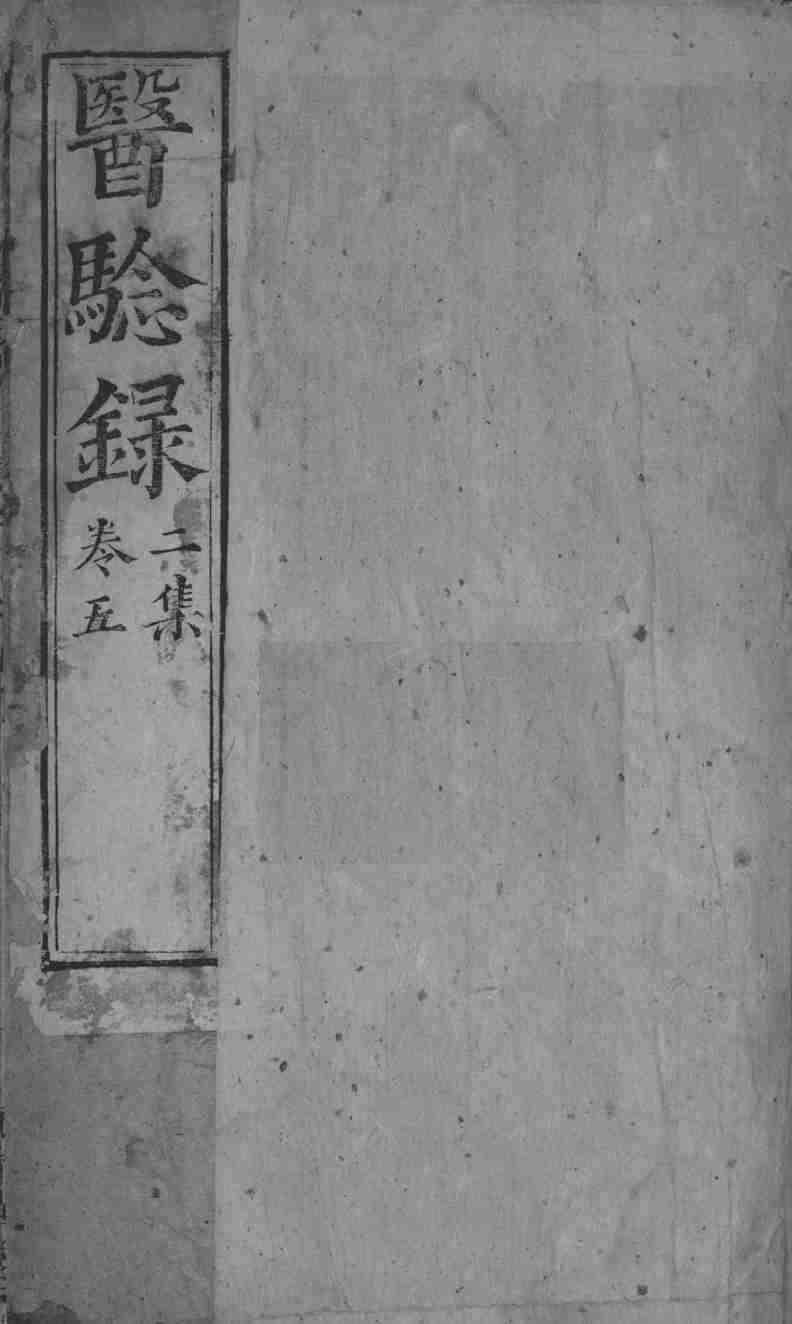 醫騐録
二集
卷五